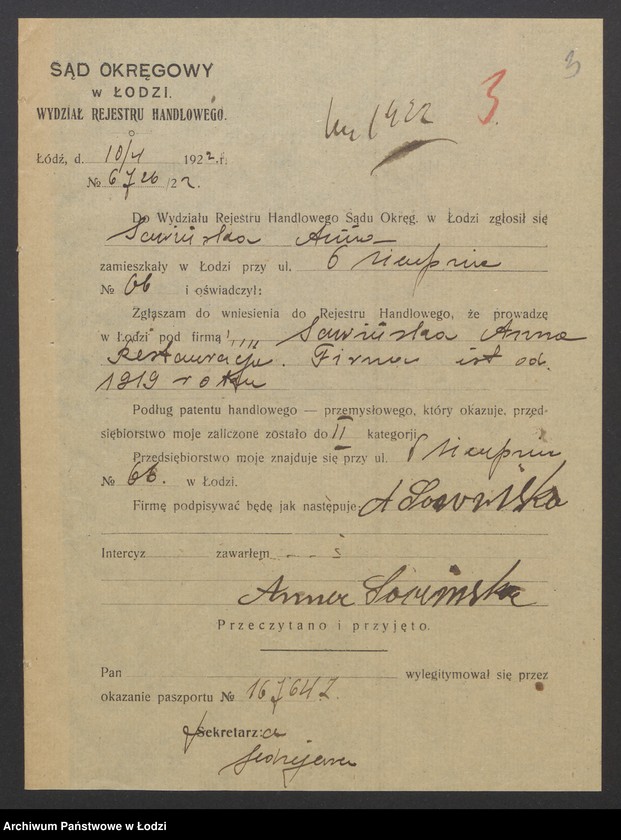 3
SĄD OKRĘGOWY
w ŁODZI.
WYDZIAŁ REJESTRU HANDLOWEGO.
1922
3.
Łódź, d. 10/4 1922.r.
№ 6726/22.
Do Wydziału Rejestru Handlowego Sądu Okręg. w Łodzi zgłosił się
Sawińska Anna
zamieszkały w Łodzi przy ul. 6 Sierpnia
№ 66 i oświadczył:
Zgłaszam do wniesienia do Rejestru Handlowego, że prowadzę
w Łodzi pod firmą: „ Sawińska Anna
Restauracja. Firma ist. od.
1919 roku
Podług patentu handlowego — przemysłowego, który okazuje, przed-
siębiorstwo moje zaliczone zostało do II kategorji.
Przedsiębiorstwo moje znajduje się przy ul. 6 Sierpnia
№ 66. w Łodzi.
Firmę podpisywać będę jak następuje: A Sawińska
Intercyz zawarłem
Anna Sawińska
Przeczytano i przyjęto.
Pan wylegitymował się przez
okazanie paszportu №
Sekretarz:
Archiwum Państwowe w Łodzi